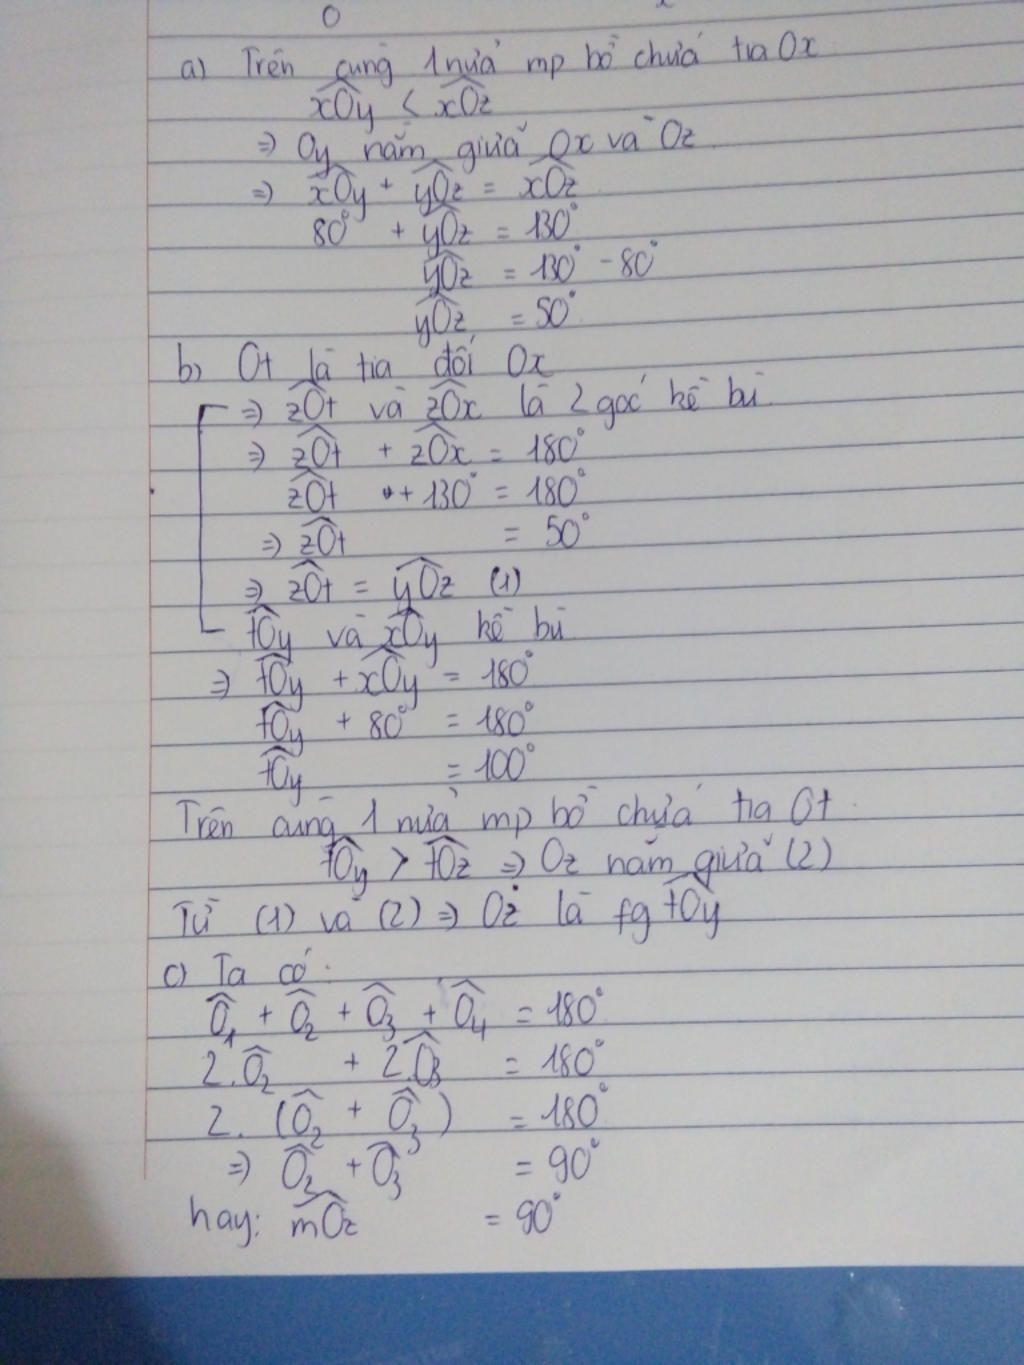 O x
a) Trên cùng 1 nửa mp bờ chứa tia Ox
xOy < xOz
=> Oy nằm giữa Ox và Oz
=> xOy + yOz = xOz
80° + yOz = 130°
yOz = 130° - 80°
yOz = 50°
b) Ot là tia đối Ox
=> zOt và zOx là 2 góc kề bù
=> zOt + zOx = 180°
zOt + 130° = 180°
=> zOt = 50°
=> zOt = yOz (1)
tOy và xOy kề bù
=> tOy + xOy = 180°
tOy + 80° = 180°
tOy = 100°
Trên cùng 1 nửa mp bờ chứa tia Ot
tOy > tOz => Oz nằm giữa (2)
Từ (1) và (2) => Oz là fg tOy
c) Ta có:
O1 + O2 + O3 + O4 = 180°
2.O2 + 2.O3 = 180°
2. (O2 + O3) = 180°
=> O2 + O3 = 90°
hay: mOz = 90°